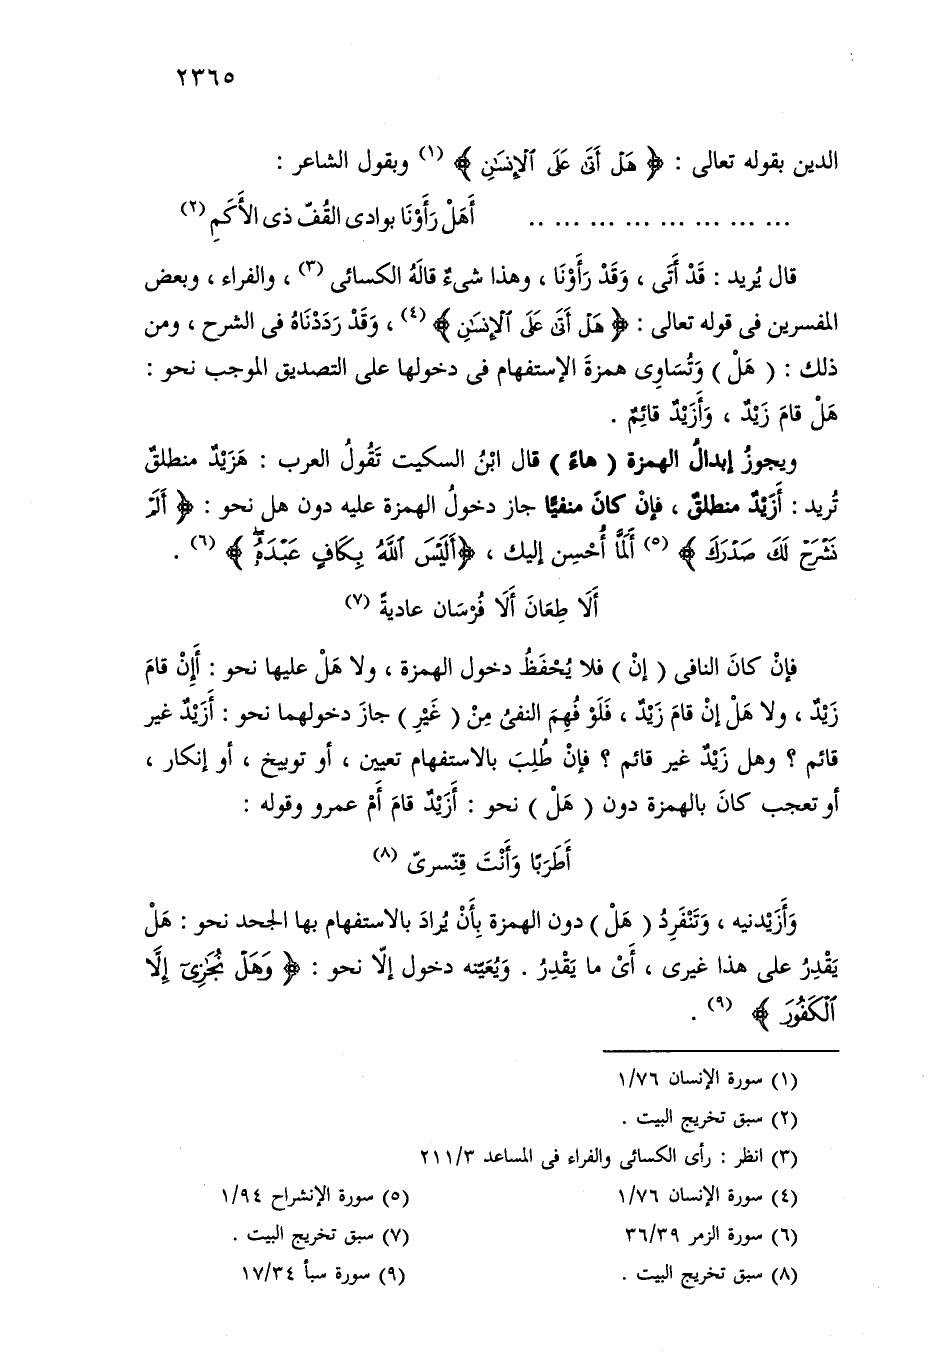 ٢٣٦٥
الدين بقوله تعالى : ﴿ هَلْ أَتَىٰ عَلَى ٱلْإِنسَٰنِ ﴾ (١) وبقول الشاعر :
... ... ... ... ... ... ... .. أَهَلْ رَأَوْنَا بوادى القُفّ ذى الأَكَمِ (٢)
قال يُريد : قَدْ أَتَى ، وَقَدْ رَأَوْنَا ، وهذا شىءٌ قالَهُ الكسائى (٣) ، والفراء ، وبعض
المفسرين فى قوله تعالى : ﴿ هَلْ أَتَىٰ عَلَى ٱلْإِنسَٰنِ ﴾ (٤) ، وَقَدْ رَدَدْنَاهُ فى الشرح ، ومن
ذلك : ( هَلْ ) وَتُسَاوِى همزةَ الإستفهام فى دخولها على التصديق الموجب نحو :
هَلْ قامَ زَيْدٌ ، وَأَزَيْدٌ قائِمٌ .
ويجوزُ إبدالُ الهمزة ( هاءً ) قال ابْنُ السكيت تَقُولُ العرب : هَزَيْدٌ منطلقٌ
تُريد : أَزَيْدٌ منطلقٌ ، فإنْ كانَ منفيًّا جاز دخولُ الهمزة عليه دون هل نحو : ﴿ أَلَمْ
نَشْرَحْ لَكَ صَدْرَكَ ﴾ (٥) أَلَمَّا أُحْسِن إليك ، ﴿أَلَيْسَ ٱللَّهُ بِكَافٍ عَبْدَهُۥۖ ﴾ (٦) .
أَلَا طِعَانَ أَلَا فُرْسَان عاديةً (٧)
فإنْ كانَ النافى ( إنْ ) فلا يُحْفَظُ دخول الهمزة ، ولا هَلْ عليها نحو : أَإِنْ قامَ
زَيْدٌ ، ولا هَلْ إنْ قامَ زَيْدٌ ، فَلَوْ فُهِمَ النفىُ مِنْ ( غَيْرِ ) جازَ دخولهما نحو : أَزَيْدٌ غير
قائم ؟ وهل زَيْدٌ غير قائم ؟ فإنْ طُلِبَ بالاستفهام تعيين ، أو توبيخ ، أو إنكار ،
أو تعجب كانَ بالهمزة دون ( هَلْ ) نحو : أَزَيْدٌ قامَ أَمْ عمرو وقوله :
أَطَرَبًا وَأَنْتَ قِنّسرىّ (٨)
وَأَزَيْدنيه ، وَتَنْفَرِدُ ( هَلْ ) دون الهمزة بِأَنْ يُرادَ بالاستفهام بها الجحد نحو : هَلْ
يَقْدِرُ على هذا غيرى ، أَىْ ما يَقْدِرُ . وَيُعَيّنه دخول إلّا نحو : ﴿ وَهَلْ نُجَٰزِىٓ إِلَّا
ٱلْكَفُورَ ﴾ (٩) .
(١) سورة الإنسان ١/٧٦
(٢) سبق تخريج البيت .
(٣) انظر : رأى الكسائى والفراء فى المساعد ٢١١/٣
(٤) سورة الإنسان ١/٧٦ (٥) سورة الإنشراح ١/٩٤
(٦) سورة الزمر ٣٦/٣٩ (٧) سبق تخريج البيت .
(٨) سبق تخريج البيت . (٩) سورة سبأ ١٧/٣٤